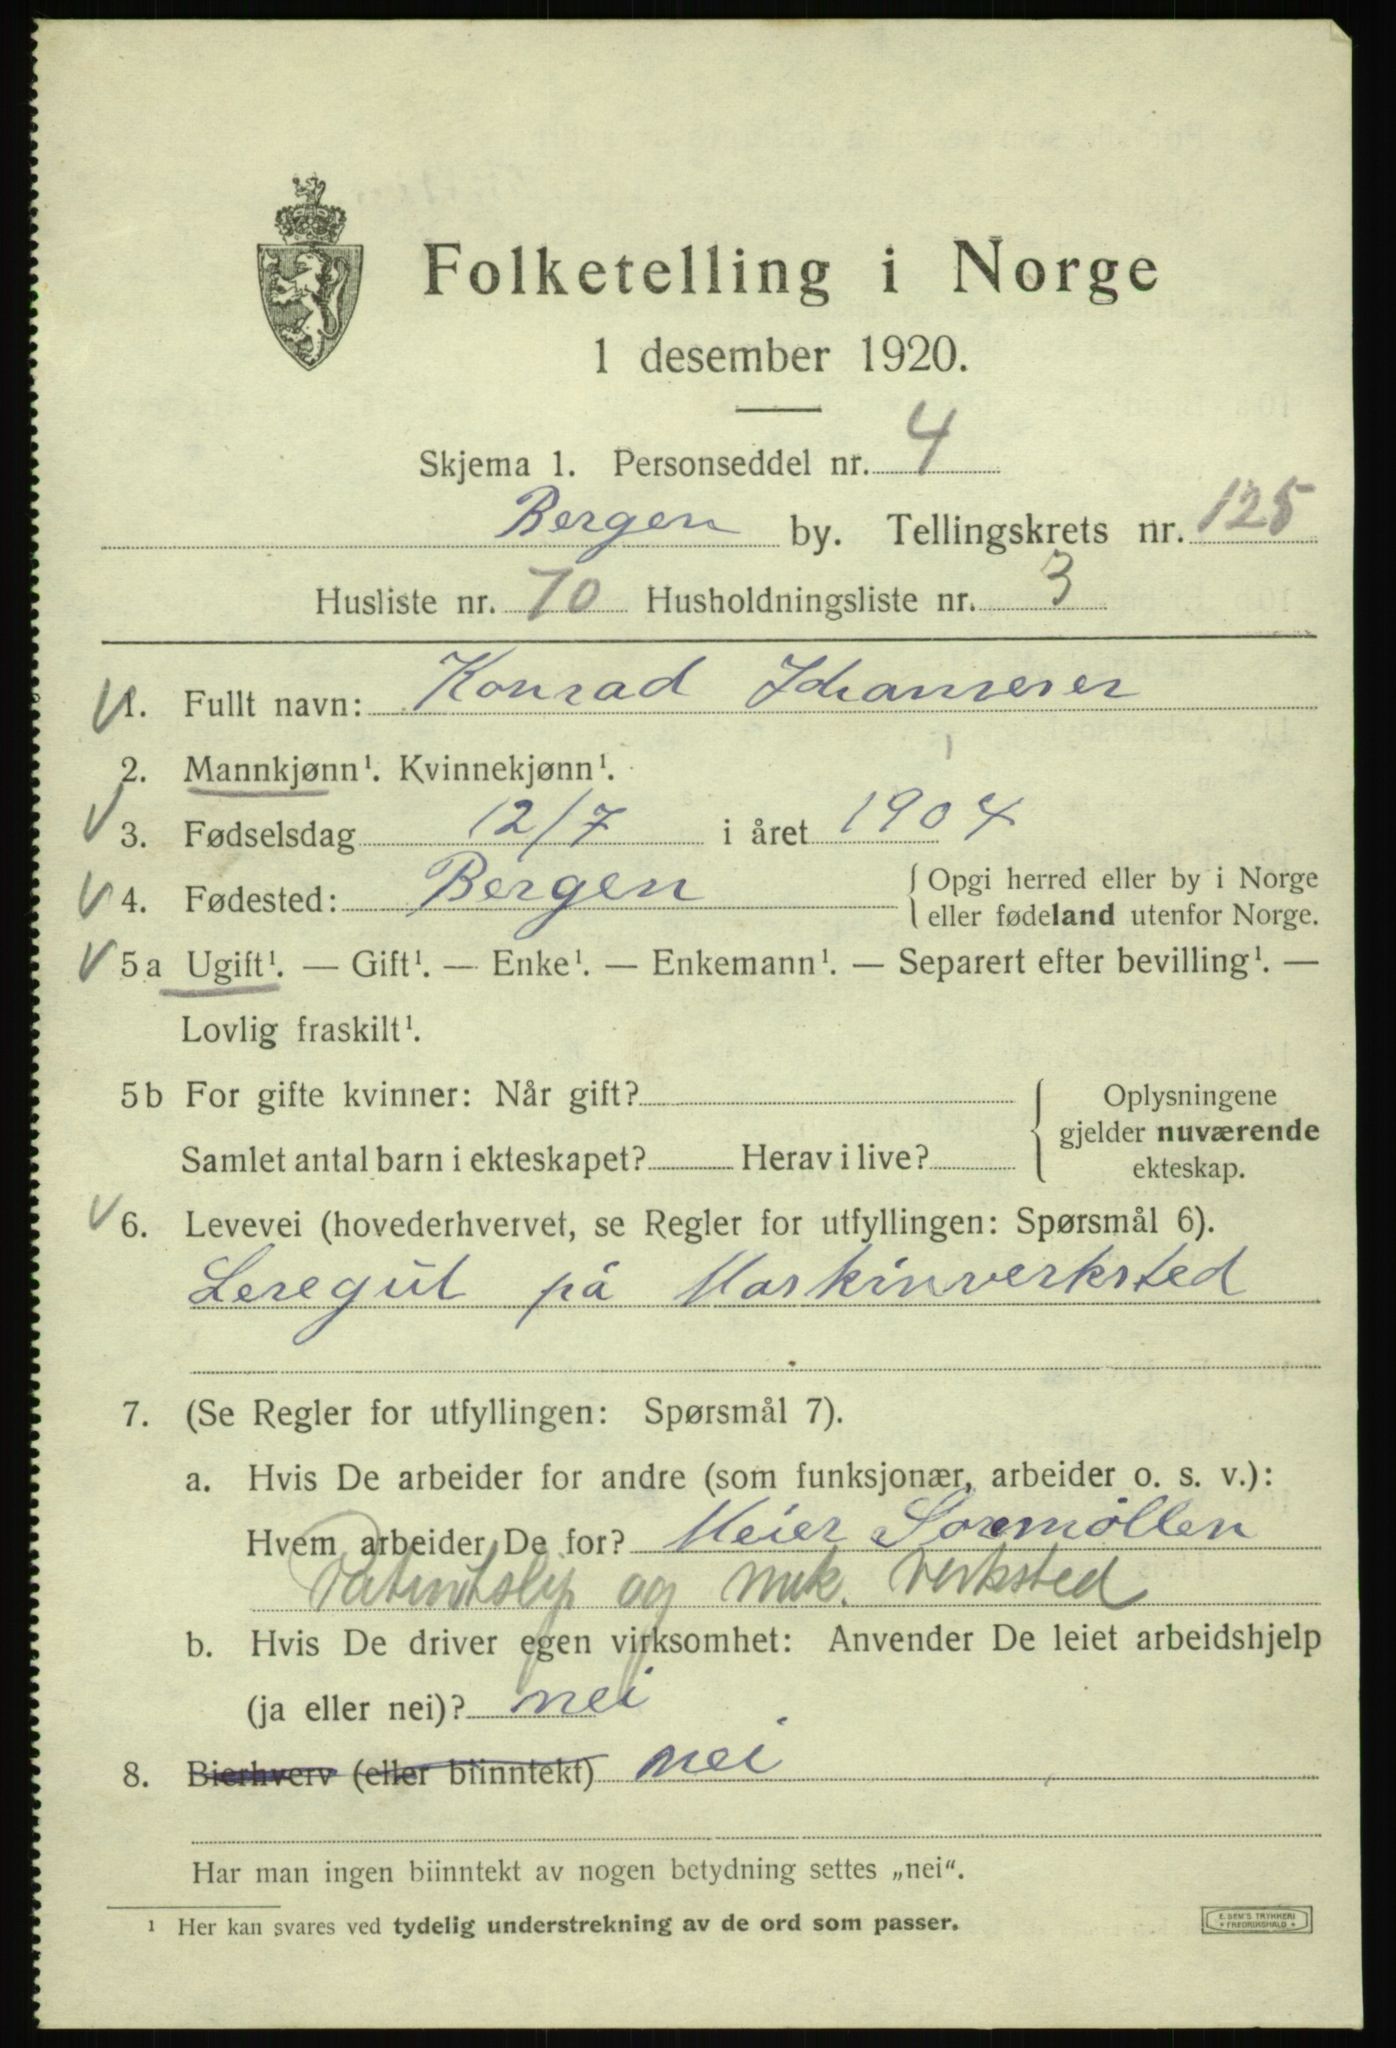 Folketelling i Norge
1 desember 1920.
Skjema 1. Personseddel nr. 4
Bergen by. Tellingskrets nr. 125
Husliste nr. 70 Husholdningsliste nr. 3
1. Fullt navn: Konrad Johannesen
2. Mannkjønn¹. Kvinnekjønn¹.
3. Fødselsdag 12/7 i året 1904
4. Fødested: Bergen { Opgi herred eller by i Norge
eller fødeland utenfor Norge.
5a Ugift¹. — Gift¹. — Enke¹. — Enkemann¹. — Separert efter bevilling¹. —
Lovlig fraskilt¹.
5b For gifte kvinner: Når gift? { Oplysningene
gjelder nuværende
Samlet antal barn i ekteskapet? Herav i live?
ekteskap.
6. Levevei (hovederhvervet, se Regler for utfyllingen: Spørsmål 6).
Leregut på Maskinverksted
7. (Se Regler for utfyllingen: Spørsmål 7).
a. Hvis De arbeider for andre (som funksjonær, arbeider o. s. v.):
Hvem arbeider De for? Meier Sormøllen
Patentslip og mek. verksted
b. Hvis De driver egen virksomhet: Anvender De leiet arbeidshjelp
(ja eller nei)? nei
8. Bierhverv (eller biinntekt) nei
Har man ingen biinntekt av nogen betydning settes „nei“.
¹ Her kan svares ved tydelig understrekning av de ord som passer.
E. SEM'S TRYKKERI
FREDRIKSHALD